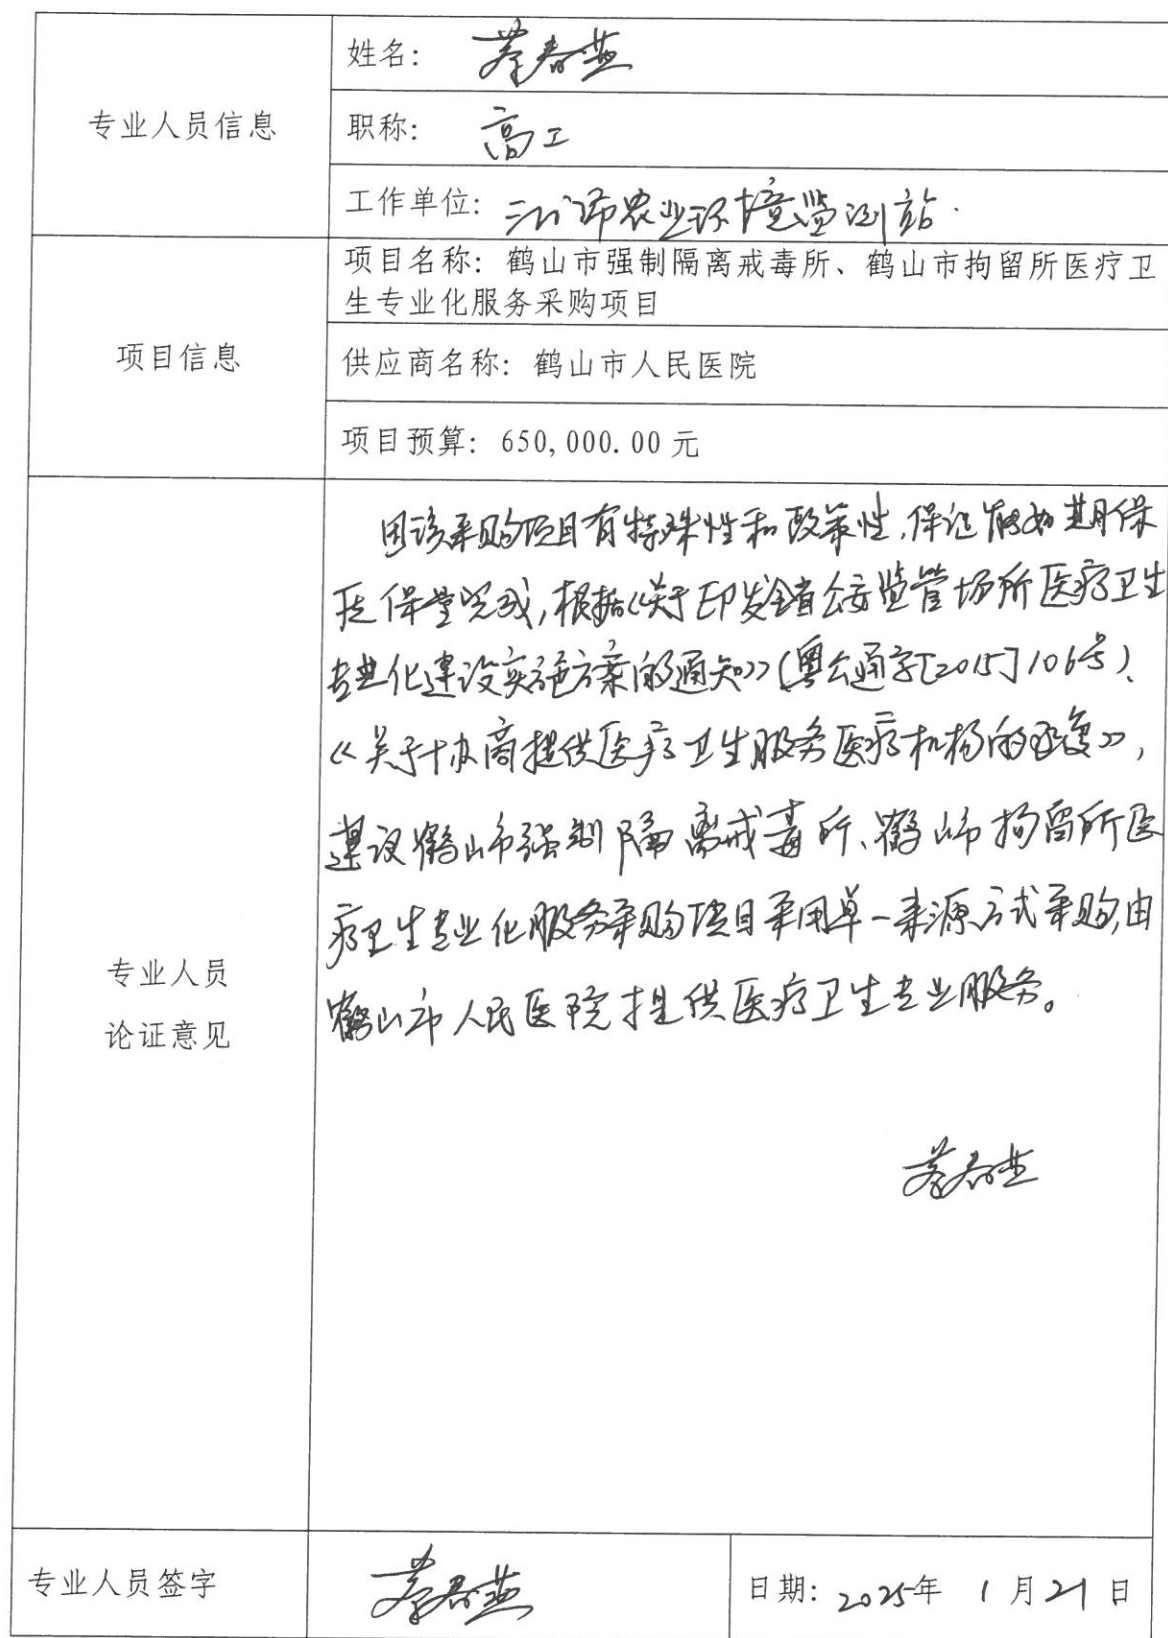 姓名：蔡春燕
专业人员信息
职称：高工
工作单位：江门市农业环境监测站.
项目名称：鹤山市强制隔离戒毒所、鹤山市拘留所医疗卫
生专业化服务采购项目
项目信息
供应商名称：鹤山市人民医院
项目预算：650,000.00元
因该采购项目有特殊性和政策性,保证能如期保
保障完成,根据《关于印发全省公安监管场所医疗卫生
专业化建设实施方案的通知》(粤公通字[2015]106号)、
《关于协商提供医疗卫生服务医疗机构的函复》,
建议鹤山市强制隔离戒毒所、鹤山市拘留所医
疗卫生专业化服务采购项目采用单一来源方式采购,由
鹤山市人民医院提供医疗卫生专业服务。
专业人员
论证意见
蔡春燕
专业人员签字
蔡春燕
日期：2025年 1月21日